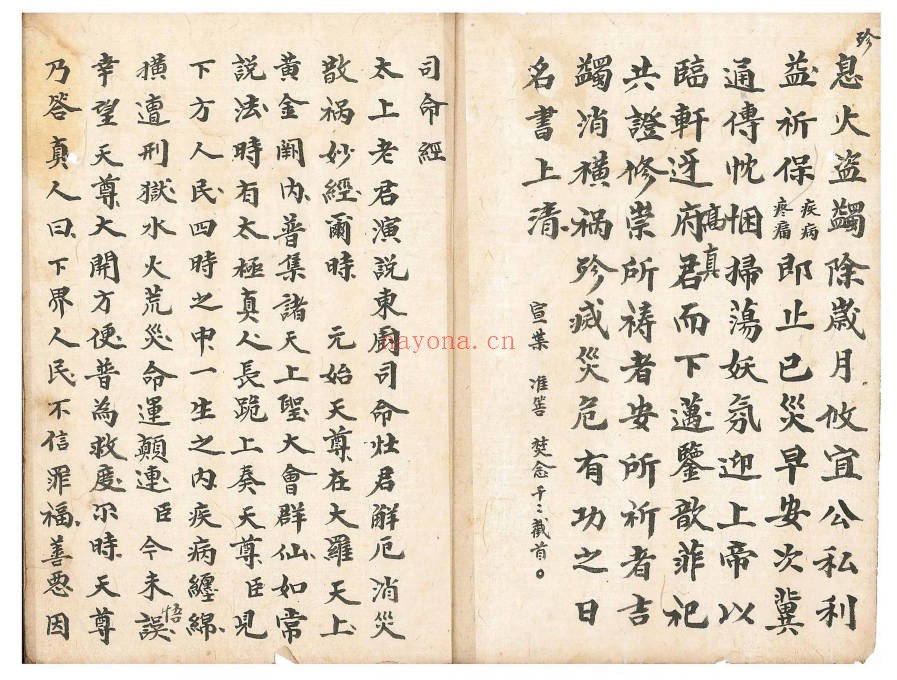 珍
息火盜蠲除歲月攸宜公私利
益祈保疾病疼痛即止已災早安次冀
通傳忱悃掃蕩妖氛迎上帝以
臨軒迓府君而下邁鑒歆菲祀
高真
共證修崇所祷者安所祈者吉
蠲消横祸殄滅災危有功之日
名書上清
宣葉 准答 焚念千三截首。
司命經
太上老君演説東厨司命灶君解厄消災
散祸妙經爾時 元始天尊在大羅天上
黄金阙內普集諸天上聖大會群仙如常
説法時有太極真人長跪上奏天尊臣見
下方人民四時之中一生之內疾病纏綿
横遭刑獄水火荒災命運顛連臣今未誤
悟
幸望天尊大開方便普為救度尔時天尊
乃答真人曰下界人民不信罪福善恶因
nayona.cn